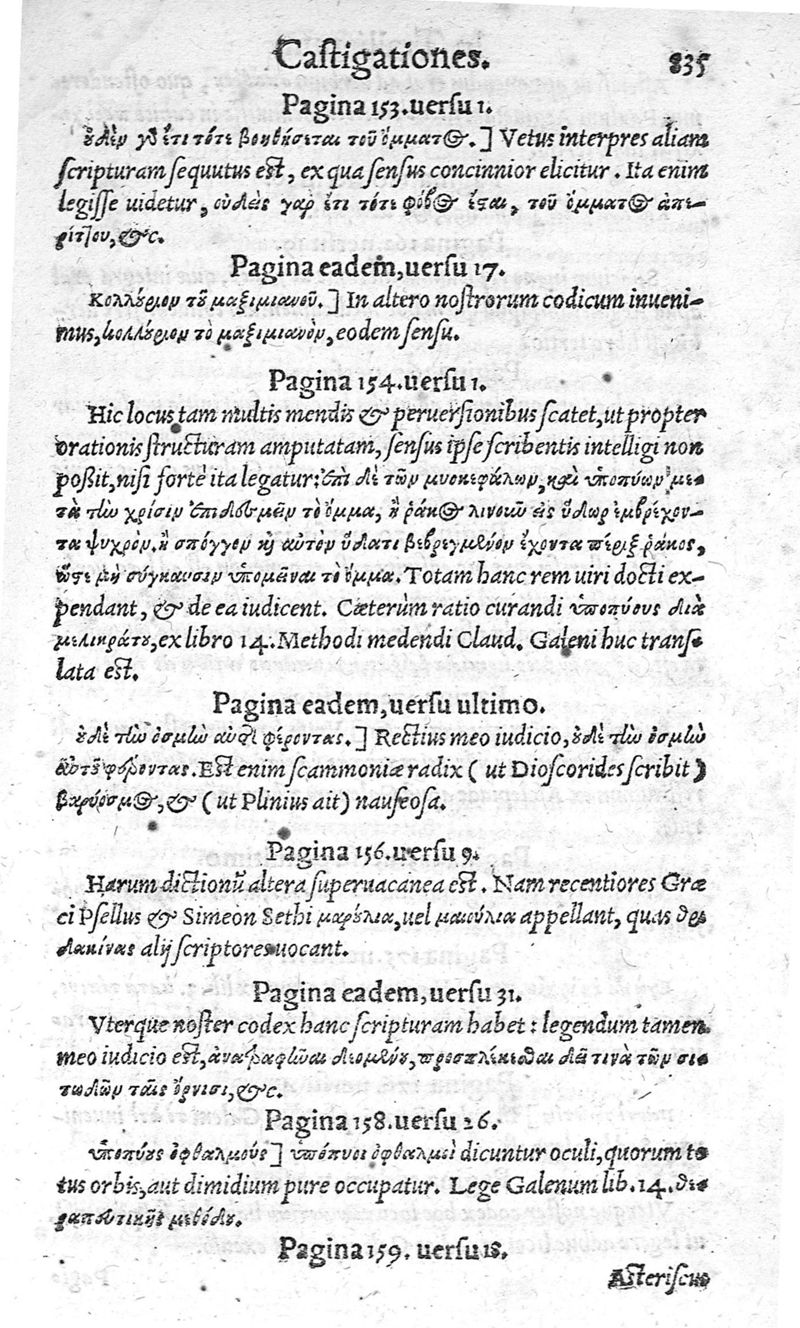 Castigationes. 835
Pagina 153. uersu 1.
οὐδὲν γὰρ ἔτι τότε βοηθήσεται τοῦ ὄμματος.] Vetus interpres aliam
scripturam sequutus est, ex qua sensus concinnior elicitur. Ita enim
legisse uidetur, οὐδεὶς γὰρ ἔτι τότε φόβος ἔσται, τοῦ ὄμματος
&c.
Pagina eadem, uersu 17.
Κολλύριον τοῦ μαξιμιανοῦ.] In altero nostrorum codicum inueni-
mus, κολλύριον τὸ μαξιμιανὸν, eodem sensu.
Pagina 154. uersu 1.
Hic locus tam multis mendis & peruersionibus scatet, ut propter
orationis structuram amputatam, sensus ipse scribentis intelligi non
poßit, nisi fortè ita legatur: ἐπὶ δὲ τῶν μυοκεφάλων, καὶ ὑποπύων με-
τὰ τὴν χρίσιν ἐπιδεσμεῖν τὸ ὄμμα, ἢ ῥάκος λινοῦν εἰς ὕδωρ ἐμβρέχον-
τα ψυχρὸν, ἢ σπόγγον καὶ αὐτὸν ὕδατι βεβρεγμένον ἔχοντα πέριξ ῥάκος,
ὥστε μὴ σύγκαυσιν ὑπομεῖναι τὸ ὄμμα. Totam hanc rem uiri docti ex-
pendant, & de ea iudicent. Cæterùm ratio curandi ὑποπύους διὰ
μελικράτου, ex libro 14. Methodi medendi Claud. Galeni huc trans-
lata est.
Pagina eadem, uersu ultimo.
οὐδὲ τὴν ὀσμὴν αὐτοῦ φέροντας.] Rectius meo iudicio, οὐδὲ τὴν ὀσμὴν
αὐτοῦ φέροντας. Est enim scammoniæ radix ( ut Dioscorides scribit )
βαρύοσμος, & ( ut Plinius ait ) nauseosa.
Pagina 156. uersu 9.
Harum dictionũ altera superuacanea est. Nam recentiores Græ
ci Psellus & Simeon Sethi μαρούλια, uel μαιούλια appellant, quas θρι-
δακίνας alij scriptores uocant.
Pagina eadem, uersu 31.
Vterque noster codex hanc scripturam habet: legendum tamen
meo iudicio est, ἀναγραφῆναι δεομένου, προσπλέκεσθαι δέ τινὰ τῶν σι-
τωδῶν ταῖς ὄρνισι, &c.
Pagina 158. uersu 26.
ὑποπύους ὀφθαλμοὺς] ὑπόπυοι ὀφθαλμοὶ dicuntur oculi, quorum to-
tus orbis, aut dimidium pure occupatur. Lege Galenum lib. 14. θε-
ραπευτικῆς μεθόδου.
Pagina 159. uersu 18.
Asteriscus